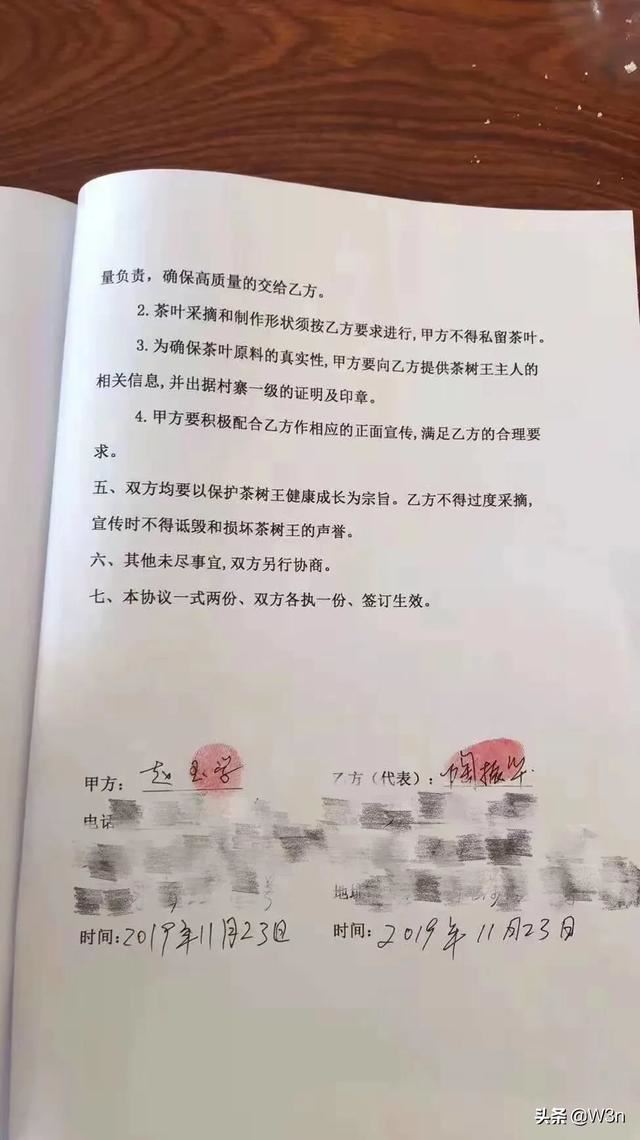 量负责，确保高质量的交给乙方。
2.茶叶采摘和制作形状须按乙方要求进行,甲方不得私留茶叶。
3.为确保茶叶原料的真实性,甲方要向乙方提供茶树王主人的
相关信息,并出据村寨一级的证明及印章。
4.甲方要积极配合乙方作相应的正面宣传,满足乙方的合理要
求。
五、双方均要以保护茶树王健康成长为宗旨。乙方不得过度采摘,
宣传时不得诋毁和损坏茶树王的声誉。
六、其他未尽事宜,双方另行协商。
七、本协议一式两份、双方各执一份、签订生效。
甲方：赵玉学
乙方（代表）：陶振华
电话
地址
时间:2019年11月23日
时间：2019年11月23日
头条@W3n